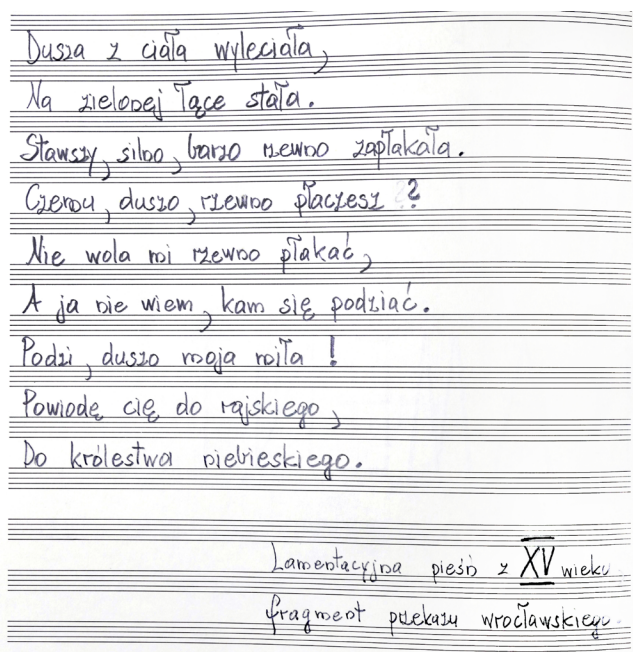 Dusza z ciała wyleciała,
Na zielonej łące stała.
Stawszy, silno, barzo rzewno zapłakała.
Czemu, duszo, rzewno płaczesz ?
Nie wola mi rzewno płakać,
A ja nie wiem, kam się podziać.
Podzi, duszo moja miła !
Powiodę cię do rajskiego,
Do królestwa niebieskiego.
Lamentacyjna pieśń z XV wieku
fragment przekazu wrocławskiego.